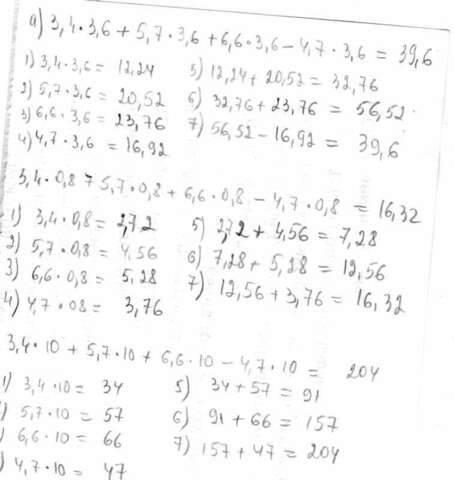 a) 3,4·3,6 + 5,7·3,6 + 6,6·3,6 - 4,7·3,6 = 39,6
1) 3,4·3,6 = 12,24
2) 5,7·3,6 = 20,52
3) 6,6·3,6 = 23,76
4) 4,7·3,6 = 16,92
5) 12,24 + 20,52 = 32,76
6) 32,76 + 23,76 = 56,52
7) 56,52 - 16,92 = 39,6
3,4·0,8 + 5,7·0,8 + 6,6·0,8 - 4,7·0,8 = 16,32
1) 3,4·0,8 = 2,72
2) 5,7·0,8 = 4,56
3) 6,6·0,8 = 5,28
4) 4,7·08 = 3,76
5) 2,72 + 4,56 = 7,28
6) 7,28 + 5,28 = 12,56
7) 12,56 + 3,76 = 16,32
3,4·10 + 5,7·10 + 6,6·10 - 4,7·10 = 204
1) 3,4·10 = 34
) 5,7·10 = 57
) 6,6·10 = 66
) 4,7·10 = 47
5) 34 + 57 = 91
6) 91 + 66 = 157
7) 157 + 47 = 204